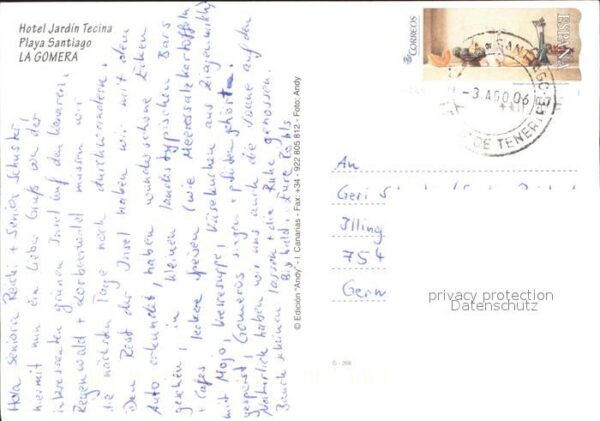 Hotel Jardín Tecina
Playa Santiago
LA GOMERA
Hola Seniora Recki + Senior Schuski!
hiermit nun ein lieber Gruß von der
interessanten grünen Insel auf den Kanaren.
Regenwald + Lorbeerwald müssen wir
die nächsten Tage noch durchwandern.
Den Rest der Insel haben wir mit dem
Auto erkundet, haben wunderschöne Ecken
gesehen, in kleinen landestypischen Bars
+ Cafes lecker speisen (wie Meeressalzkartoffeln
mit Mojo, Kressesuppe, Käsekuchen aus Ziegenmilch)
gespeist, Gomeros singen + pfeifen gehört.
Natürlich haben wir uns auch die Sonne auf den
Bauch scheinen lassen + die Ruhe genossen.
Bis bald, Eure
© Edición "Andy" - I. Canarias - Fax: +34 - 922 805 812 - Foto: Andy
CORREOS
ESPAÑA
-3.AGO.06
DE TENERIFE
An
Geri
Illing
754
Germ
privacy protection
Datenschutz
G - 268